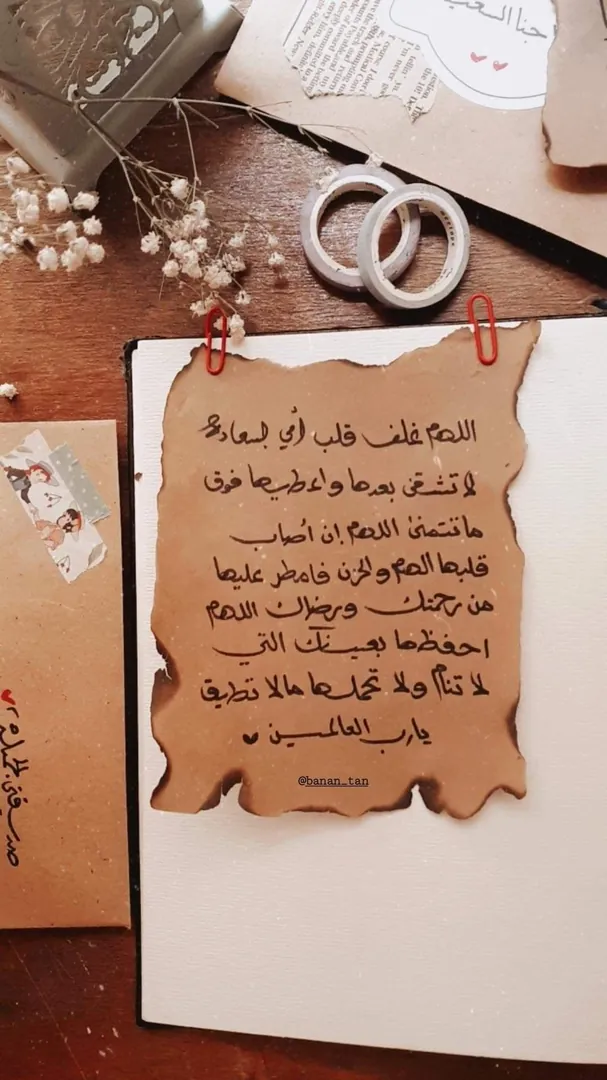 اللهم غلف قلب أمي بسعادة
لا تشقى بعدها واعطيها فوق
ما تتمنى اللهم إن أصاب
قلبها الهم والحزن فامطر عليها
من رحمتك وبرضاك اللهم
احفظها بعينك التي
لا تنام ولا تحملها مالا تطيق
يارب العالمين
@banan_tan
صديقتي الجميلة